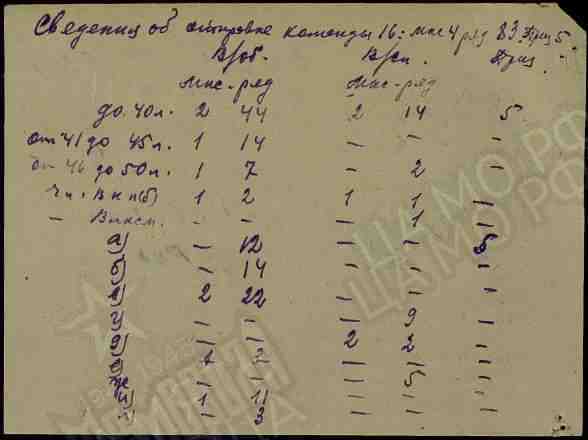 Сведения об экипировке команды 16: мнс 4 ряд 83 Приз 5.
В/об. В/сл. Приз.
Мнс - ряд Мнс - ряд
до 40 л. 2 44 2 14 5
от 41 до 45 л. 1 14 — — —
от 46 до 50 л. 1 7 — 2 —
Чл. ВКП(б) 1 2 1 1 —
— ВЛКСМ. — — — 1 —
а) — 12 — — 5
б) — 14 — — —
в) 2 22 — — —
г) — — — 9 —
д) — — 2 2 —
— — —
— — — 5 —
1 11 — — —
— 3 — — —
ЦАМО РФ
ЦАМО РФ